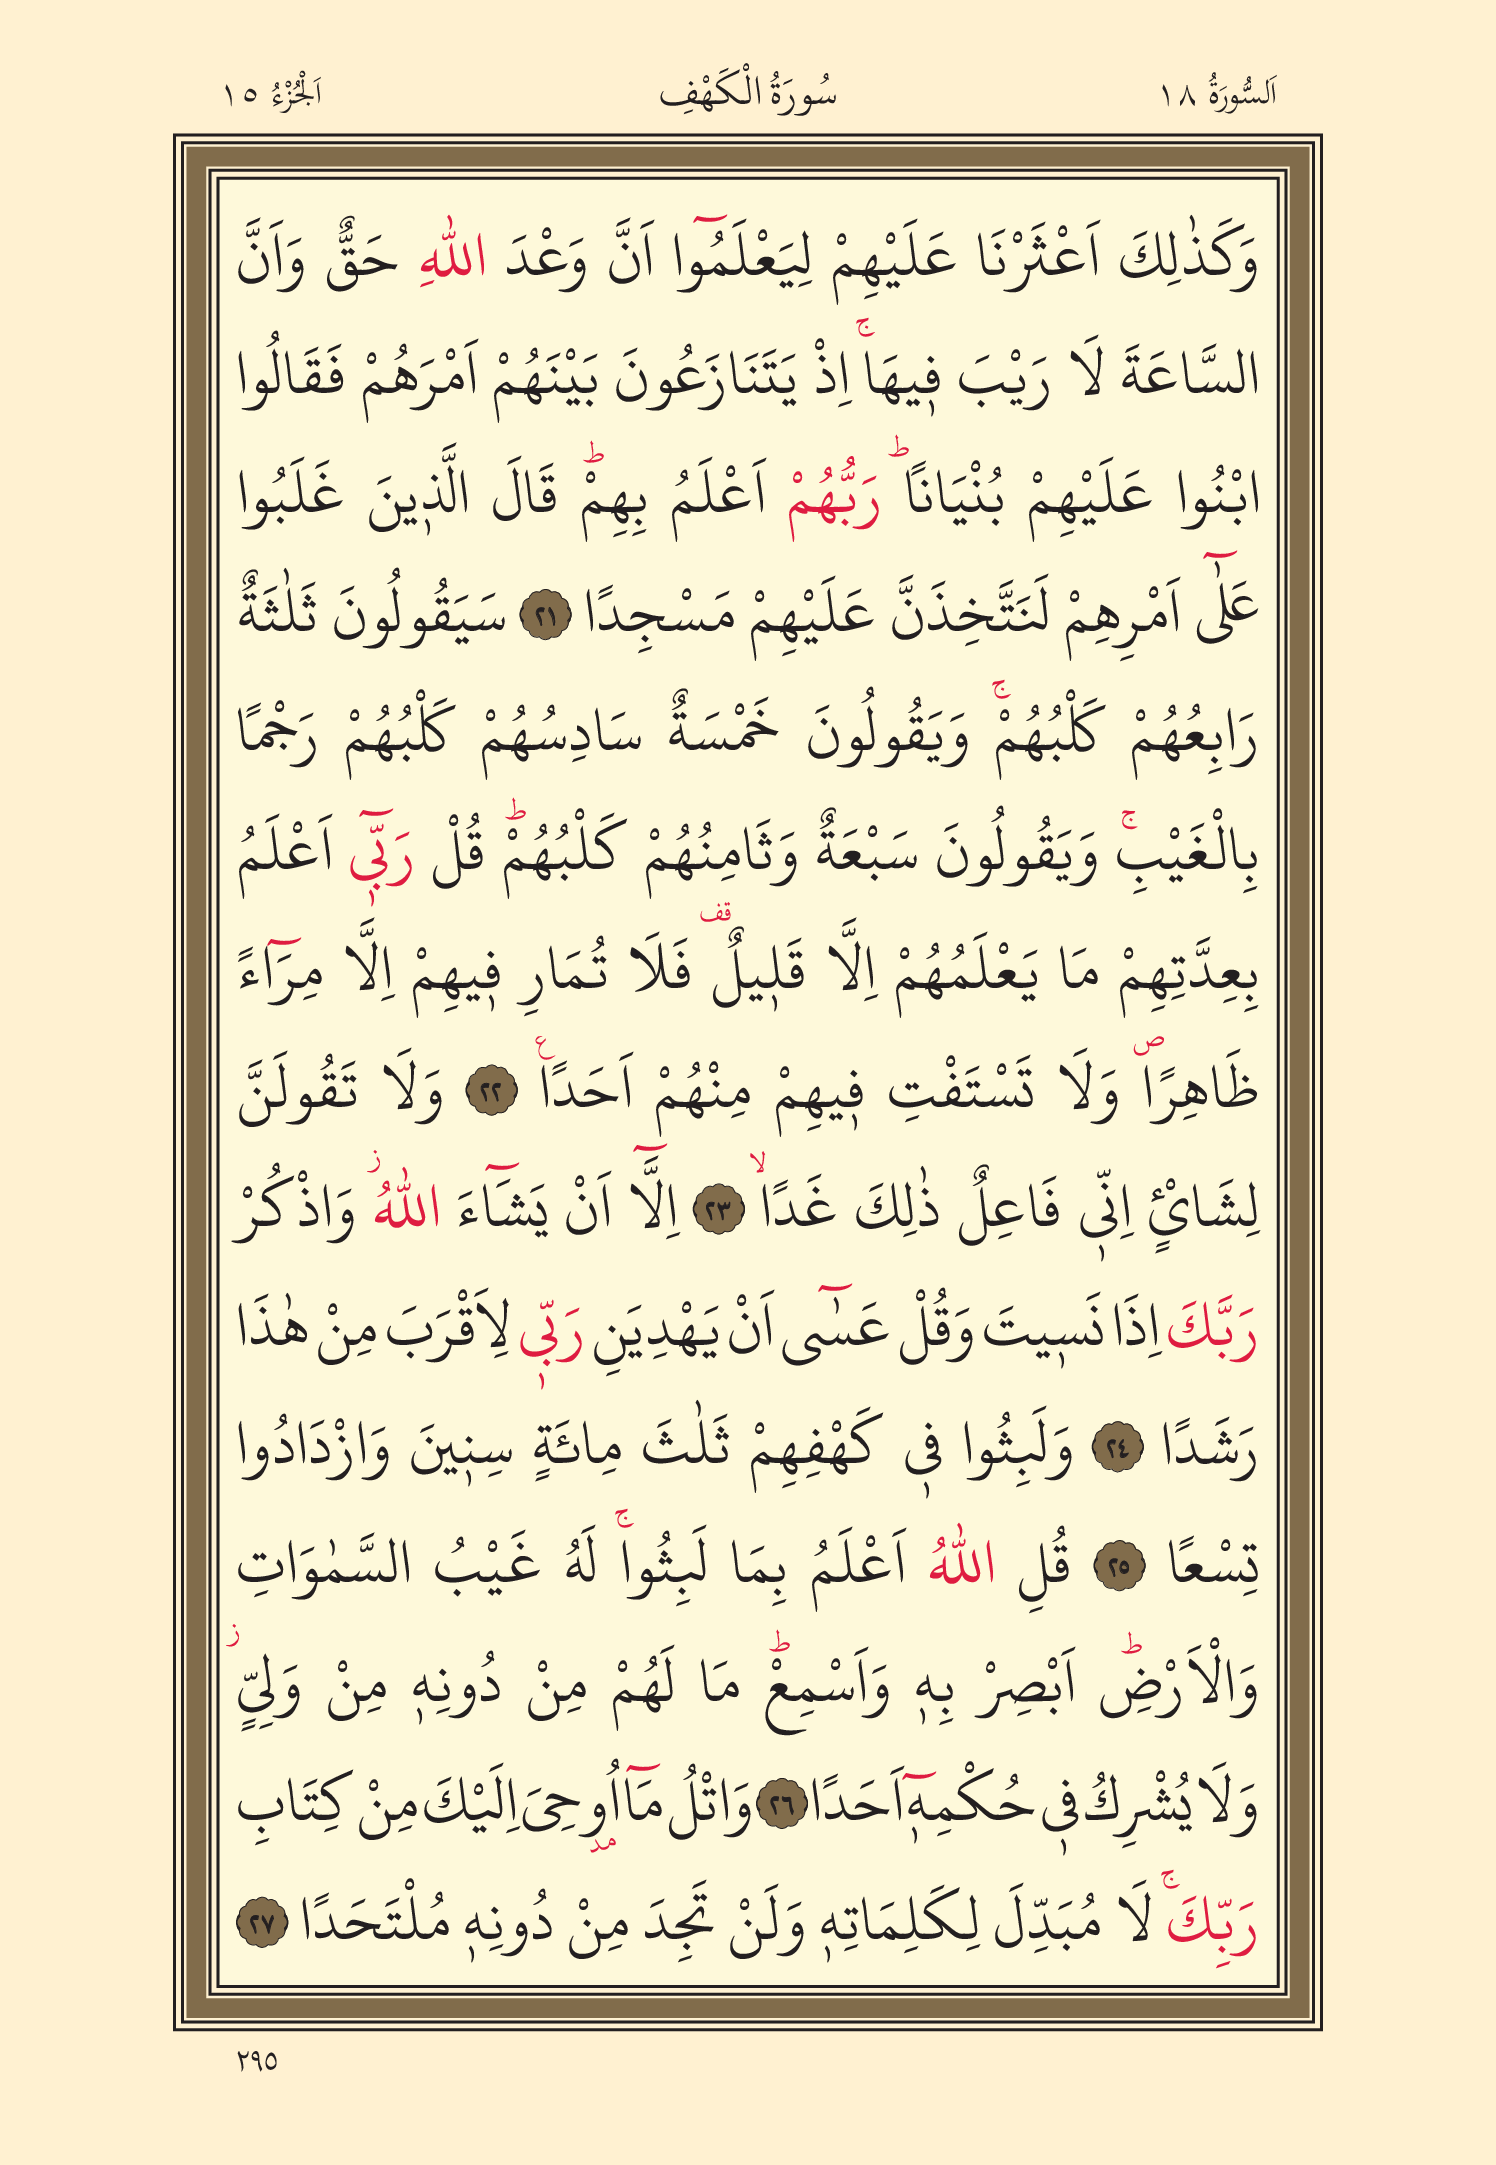 اَلسُّورَةُ ١٨ سُورَةُ الْكَهْفِ اَلْجُزْءُ ١٥
وَكَذٰلِكَ اَعْثَرْنَا عَلَيْهِمْ لِيَعْلَمُٓوا اَنَّ وَعْدَ اللّٰهِ حَقٌّ وَاَنَّ
السَّاعَةَ لَا رَيْبَ ف۪يهَاۚ اِذْ يَتَنَازَعُونَ بَيْنَهُمْ اَمْرَهُمْ فَقَالُوا
ابْنُوا عَلَيْهِمْ بُنْيَانًاۜ رَبُّهُمْ اَعْلَمُ بِهِمْۜ قَالَ الَّذ۪ينَ غَلَبُوا
عَلٰٓى اَمْرِهِمْ لَنَتَّخِذَنَّ عَلَيْهِمْ مَسْجِدًا ٢١ سَيَقُولُونَ ثَلٰثَةٌ
رَابِعُهُمْ كَلْبُهُمْۚ وَيَقُولُونَ خَمْسَةٌ سَادِسُهُمْ كَلْبُهُمْ رَجْمًا
بِالْغَيْبِۚ وَيَقُولُونَ سَبْعَةٌ وَثَامِنُهُمْ كَلْبُهُمْۜ قُلْ رَبّ۪ٓي اَعْلَمُ
بِعِدَّتِهِمْ مَا يَعْلَمُهُمْ اِلَّا قَل۪يلٌ۠ قف فَلَا تُمَارِ ف۪يهِمْ اِلَّا مِرَٓاءً
ظَاهِرًاۖ وَلَا تَسْتَفْتِ ف۪يهِمْ مِنْهُمْ اَحَدًاۚ ع ٢٢ وَلَا تَقُولَنَّ
لِشَايْءٍ اِنّ۪ي فَاعِلٌ ذٰلِكَ غَدًاۙ ٢٣ اِلَّٓا اَنْ يَشَٓاءَ اللّٰهُۘ وَاذْكُرْ
رَبَّكَ اِذَا نَس۪يتَ وَقُلْ عَسٰٓى اَنْ يَهْدِيَنِ رَبّ۪ي لِاَقْرَبَ مِنْ هٰذَا
رَشَدًا ٢٤ وَلَبِثُوا ف۪ي كَهْفِهِمْ ثَلٰثَ مِائَةٍ سِن۪ينَ وَازْدَادُوا
تِسْعًا ٢٥ قُلِ اللّٰهُ اَعْلَمُ بِمَا لَبِثُواۚ لَهُ غَيْبُ السَّمٰوَاتِ
وَالْاَرْضِۜ اَبْصِرْ بِه۪ وَاَسْمِعْۜ مَا لَهُمْ مِنْ دُونِه۪ مِنْ وَلِيٍّۘ
وَلَا يُشْرِكُ ف۪ي حُكْمِه۪ٓ اَحَدًا ٢٦ وَاتْلُ مَٓا اُو۫حِيَ اِلَيْكَ مِنْ كِتَابِ
رَبِّكَۚ لَا مُبَدِّلَ لِكَلِمَاتِه۪ وَلَنْ تَجِدَ مِنْ دُونِه۪ مُلْتَحَدًا ٢٧
٢٩٥